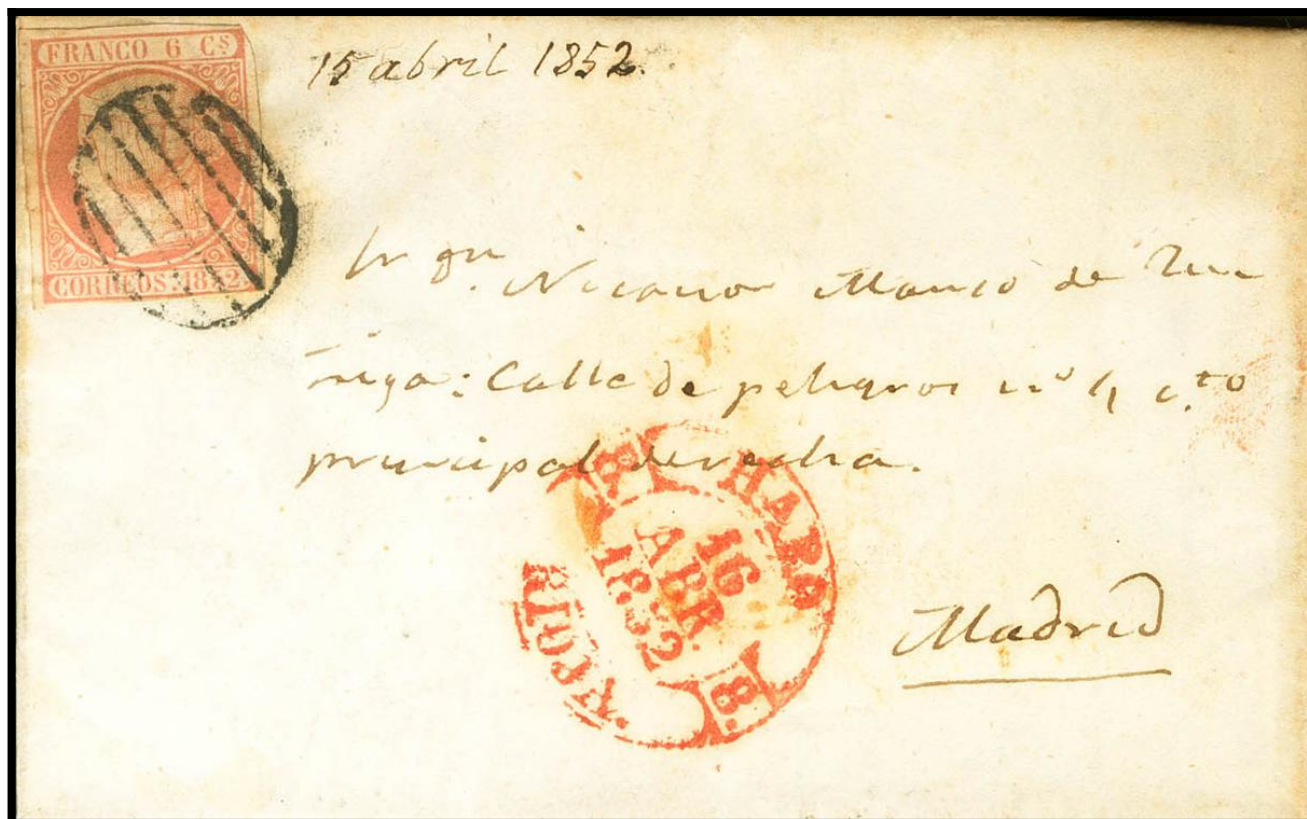 FRANCO 6 Cs
CORREOS 1852
15 abril 1852.
Sr Dn. Nicanor Manso de Zu
ñiga: Calle de peligros nº 4 c.to
principal derecha.
HARO
16
ABR.
1852
8.
8.
RIOJA.
Madrid